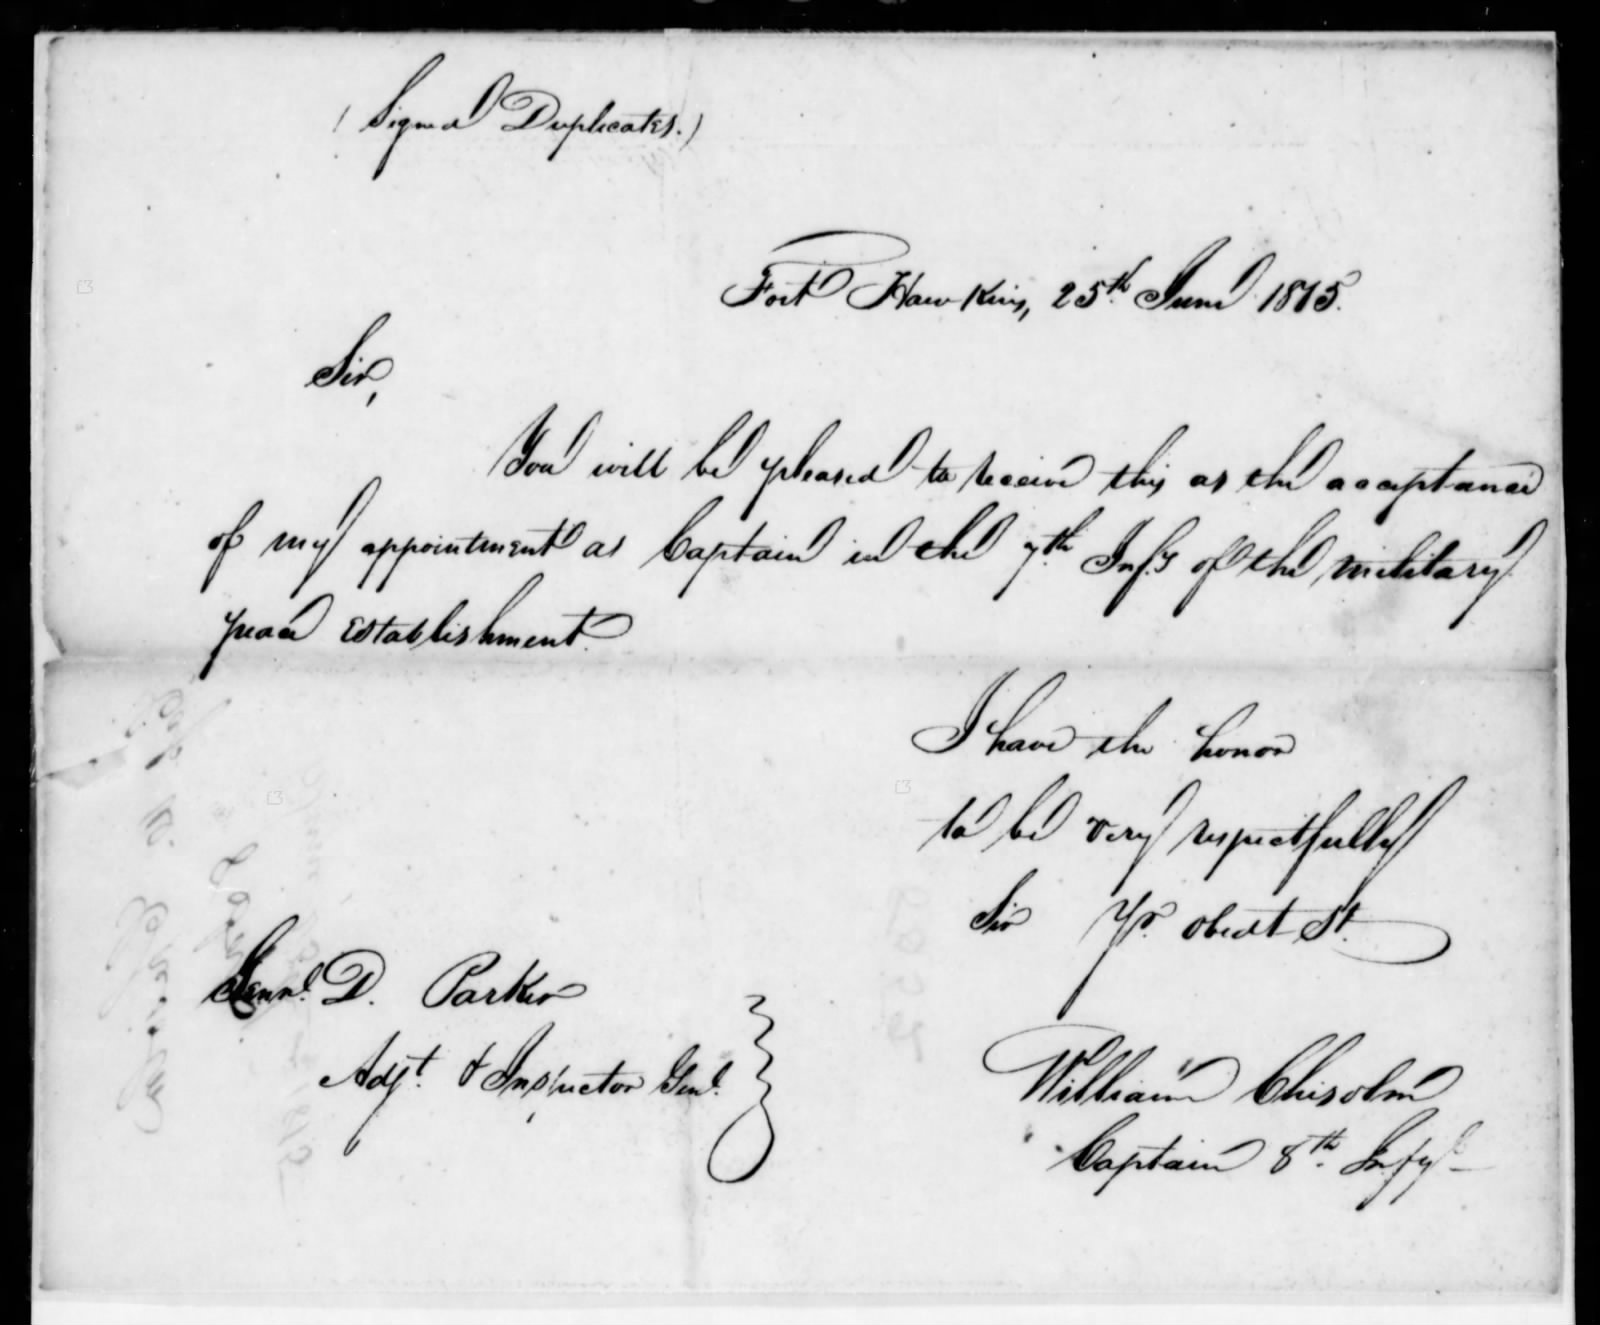 (Signed Duplicates.)
Fort Hawkins, 25th June 1815.
Sir,
You will be pleased to receive this as the acceptance
of my appointment as Captain in the 7th Infy of the military
peace establishment.
I have the honor
to be very respectfully
Sir Yr. obedt St.
Gennl. D. Parker
Adjt. & Inspector Genl.
William Chisolm
Captain 8th. Infy